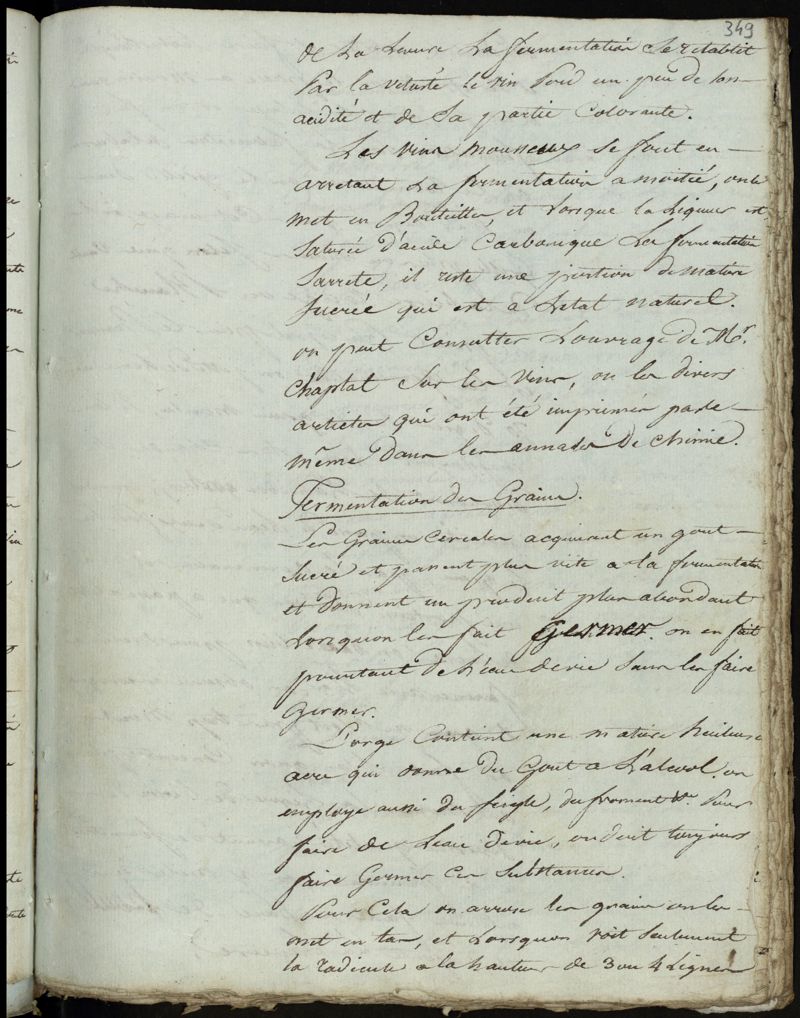 349
de La Levure La fermentation se retablit
Par la vetusté Le vin Perd un peu de son
acidité et de Sa partie Colorante.
Les vins mousseux se font en
arretant La fermentation a moitié, on le
met en Bouteilles, et Lorsque la Liqueur est
Saturée d'acide Carbonique La fermentation
Sarrete, il reste une portion de matiere
Sucrée qui est à Letat naturel.
on peut Consulter Louvrage de Mr.
Chaptal Sur les Vins, ou les divers
articles qui ont été imprimés par le
même dans les annales de chimie.
Fermentation des Grains.
Les Grains Cereales acquierent un gout
Sucré et passent plus vite a la fermentation
et donnent un produit plus abondant
Lorsquon les fait Germer. on en fait
pourtant de L'eau de vie Sans les faire
Germer.
L'orge Contient une matiere huileuse
acre qui donne du Gout a L'alcool, on
employe aussi du seigle, du froment &c. Pour
faire de Leau de vie, on doit toujours
faire Germer ces Substances.
Pour Cela on arrose les grains on les
met en tas, et Lorsquon voit Seulement
la radicule a la hauteur de 3 ou 4 Lignes